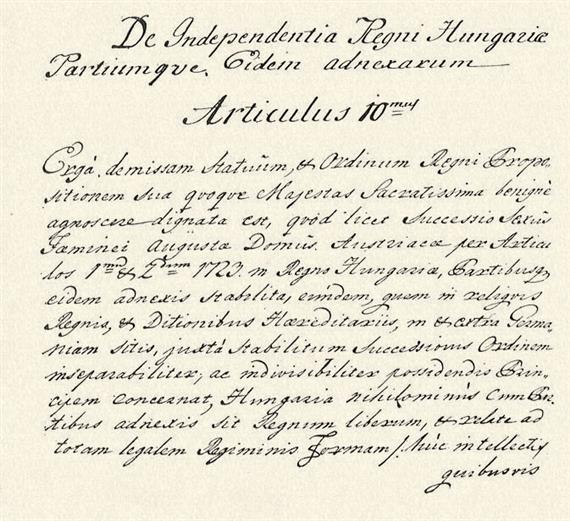 De Independentia Regni Hungariæ
Partiumqve Eidem adnexarum
Articulus 10mus
Ergà demissam Statuũm, & Ordinum Regni Propo-
sitionem sua qvoqve Majestas Sacratissima benignè
agnoscere dignata est, qvòd licet Successio Sexûs
Fœminei Augustæ Domûs Austriacæ per Articu
los 1mum & 2dum 1723. in Regno Hungariæ, Partibusq
eidem adnexis stabilita, eundem, quem in reliqvis
Regnis, & Ditionibus Hæreditariis, in & extra Germa
niam sitis, juxtà stabilitum Successionis Ordinem
inseparabiliter, ac indivisibiliter possidendis Prin-
cipem concernat, Hungaria nihilominùs cum Par
tibus adnexis sit Regnum liberum, & relatè ad
totam legalem Regiminis Formam /: hùc intellectis
quibusvis